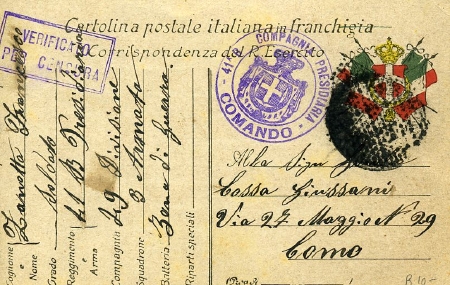 Cartolina postale italiana in franchigia
Corrispondenza del R. Esercito
VERIFICATO
PER CENSURA
41ª COMPAGNIA PRESIDIARIA
COMANDO
Cognome Zanotta
Nome
Grado Soldato
Reggimento 41
Arma
Compagnia 49 Divisione
Squadrone 3 Armata
Batteria Zona di guerra
Riparti speciali
Alla Sign
Cossa Giussani
Via 27 Maggio N° 29
Como